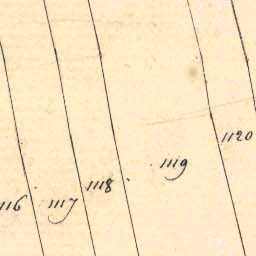 1120
1119
1118
1117
116